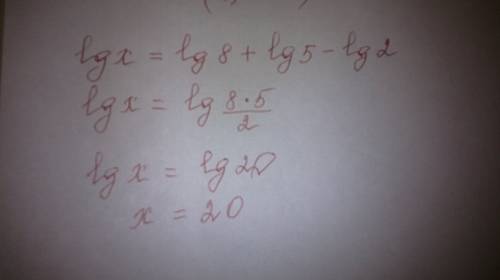 lg x = lg 8 + lg 5 - lg 2
lg x = lg 8·5/2
lg x = lg 20
x = 20